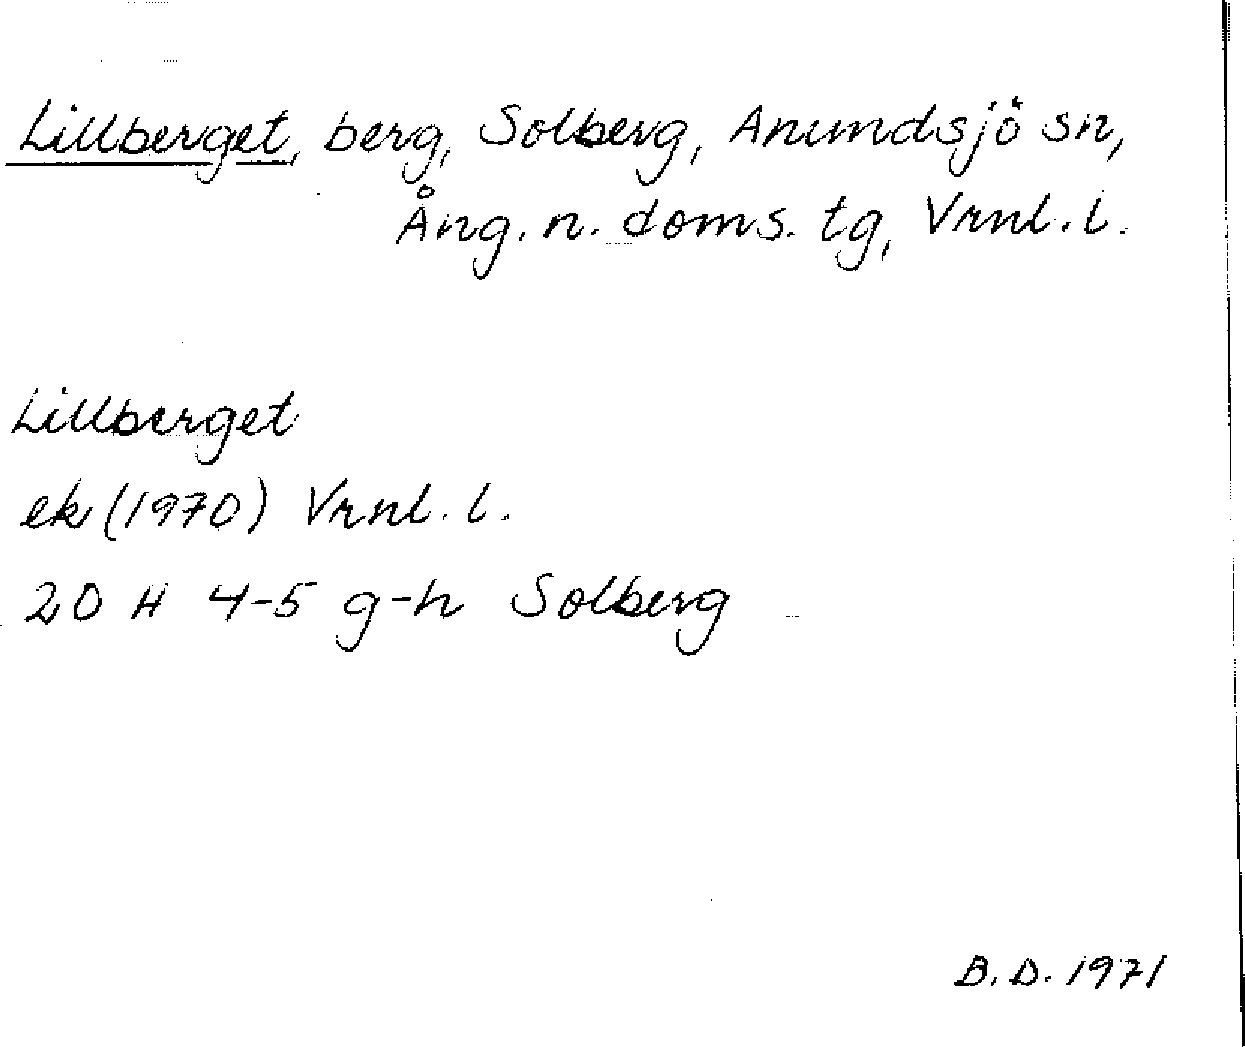 Lillberget, berg, Solberg, Anundsjö sn,
Ång. n. doms. tg, Vrnl. l.
Lillberget
ek (1970) Vrnl. l.
20 H 4-5 g-h Solberg
B. D. 1971